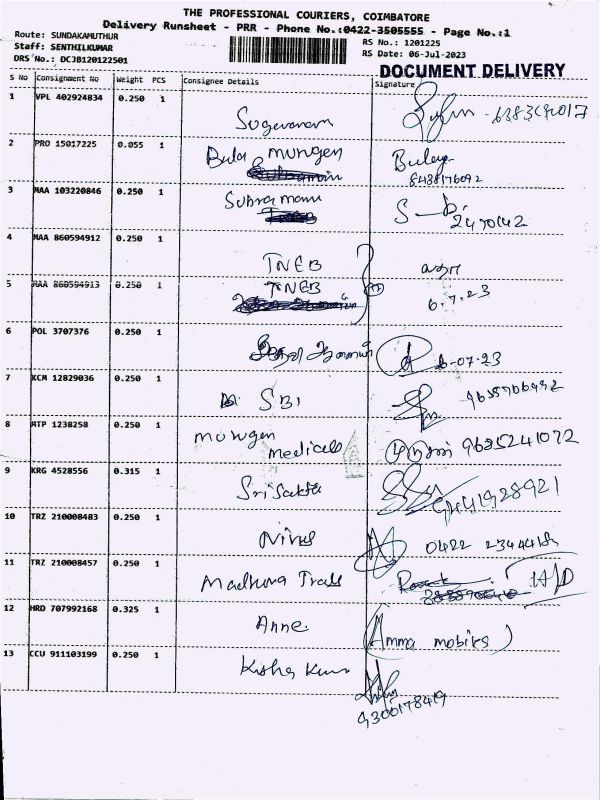 THE PROFESSIONAL COURIERS, COIMBATORE
Delivery Runsheet - PRR - Phone No.:0422-3505555 - Page No.:1
Route: SUNDAKAMUTHUR
RS No.: 1201225
Staff: SENTHILKUMAR
RS Date: 06-Jul-2023
DRS No.: DCJB120122501
DOCUMENT DELIVERY
S No Consignment No Weight PCS Consignee Details Signature
1 VPL 402924834 0.250 1
Sugavanam
2 PRO 15017225 0.055 1
Bala murugen
8438176092
3 MAA 103220846 0.250 1
Subramani
2470142
4 MAA 860594912 0.250 1
TNEB
5 MAA 860594913 0.250 1
TNEB
6.7.23
6 POL 3707376 0.250 1
6-07-23
7 KCM 12829036 0.250 1
SBI
8 MTP 1238258 0.250 1
murugen
medicals 9625241072
9 KRG 4528556 0.315 1
Srisakthi
10 TRZ 210008483 0.250 1
0422
11 TRZ 210008457 0.250 1
Madhura
12 HRD 707992168 0.325 1
Anne (Amma mobiles)
13 CCU 911103199 0.250 1
9300178419